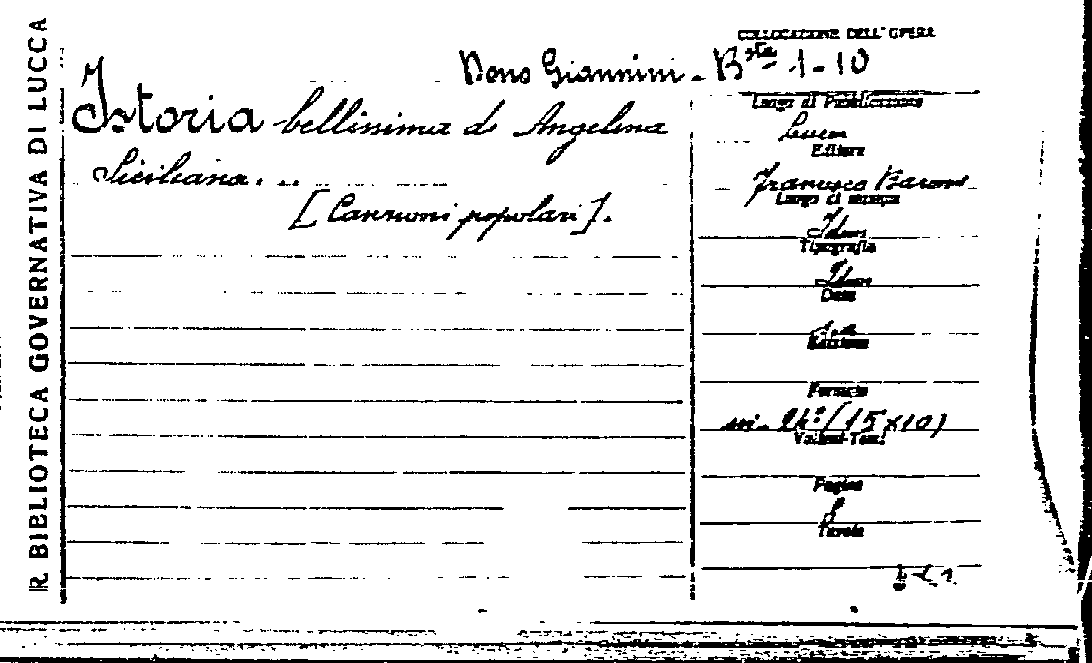 R. BIBLIOTECA GOVERNATIVA DI LUCCA
COLLOCAZIONE DELL'OPERA
Dono Giannini - B.sta 1-10
Istoria bellissima di Angelina
Siciliana. ..
[Canzoni popolari].
Luogo di Pubblicazione
Lucca
Editore
Francesco Baroni
Luogo di stampa
Idem
Tipografia
Idem
Data
Edizione
Formato
in-24° (15x10)
Volumi-Tomi
Pagine
8
Tavole